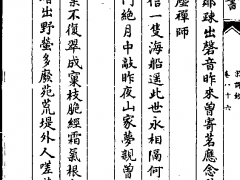 卷八十六
殊出磬音昨來曾寄茗應念
座禪師
信一隻海船遥此世永相隔何
門絶月中敲昨夜山家夢親曾
不復翠成窠枝脆經霜氣根
出野螢多廢苑荒堤外人嗟